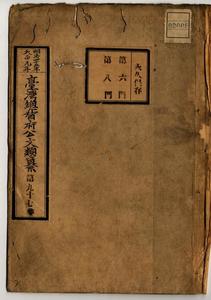 永久保存
第六門
第八門
明治四十五年
大正元年
臺灣總督府公文類纂 第九十七卷